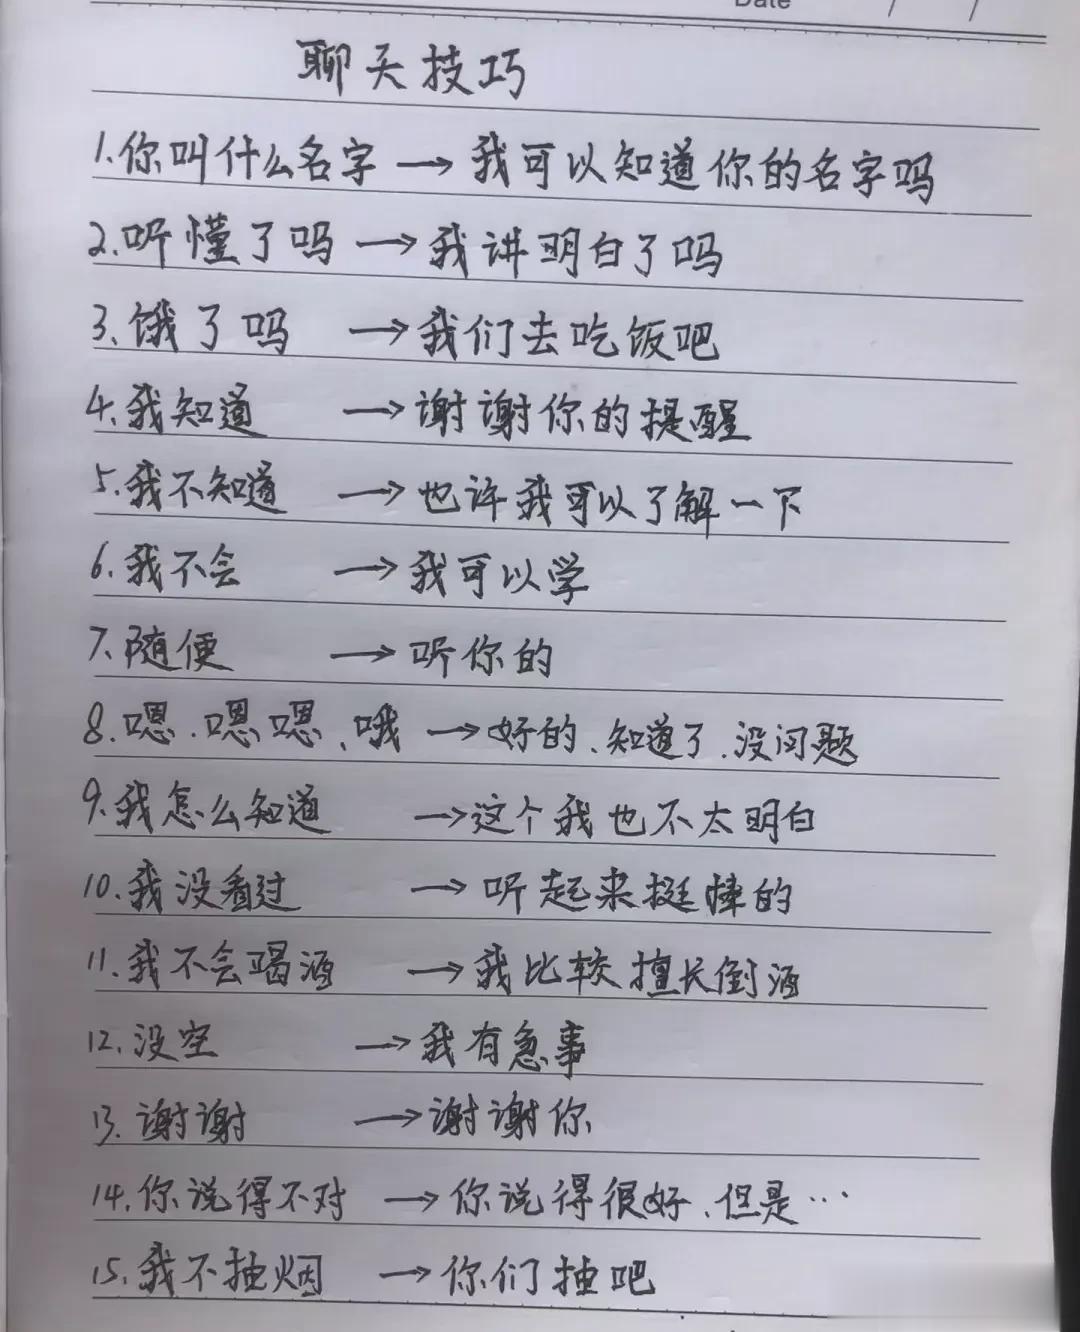 Date / /
聊天技巧
1.你叫什么名字 → 我可以知道你的名字吗
2.听懂了吗 → 我讲明白了吗
3.饿了吗 → 我们去吃饭吧
4.我知道 → 谢谢你的提醒
5.我不知道 → 也许我可以了解一下
6.我不会 → 我可以学
7.随便 → 听你的
8.嗯.嗯嗯、哦 → 好的、知道了.没问题
9.我怎么知道 → 这个我也不太明白
10.我没看过 → 听起来挺棒的
11.我不会喝酒 → 我比较擅长倒酒
12.没空 → 我有急事
13.谢谢 → 谢谢你
14.你说得不对 → 你说得很好、但是…
15.我不抽烟 → 你们抽吧